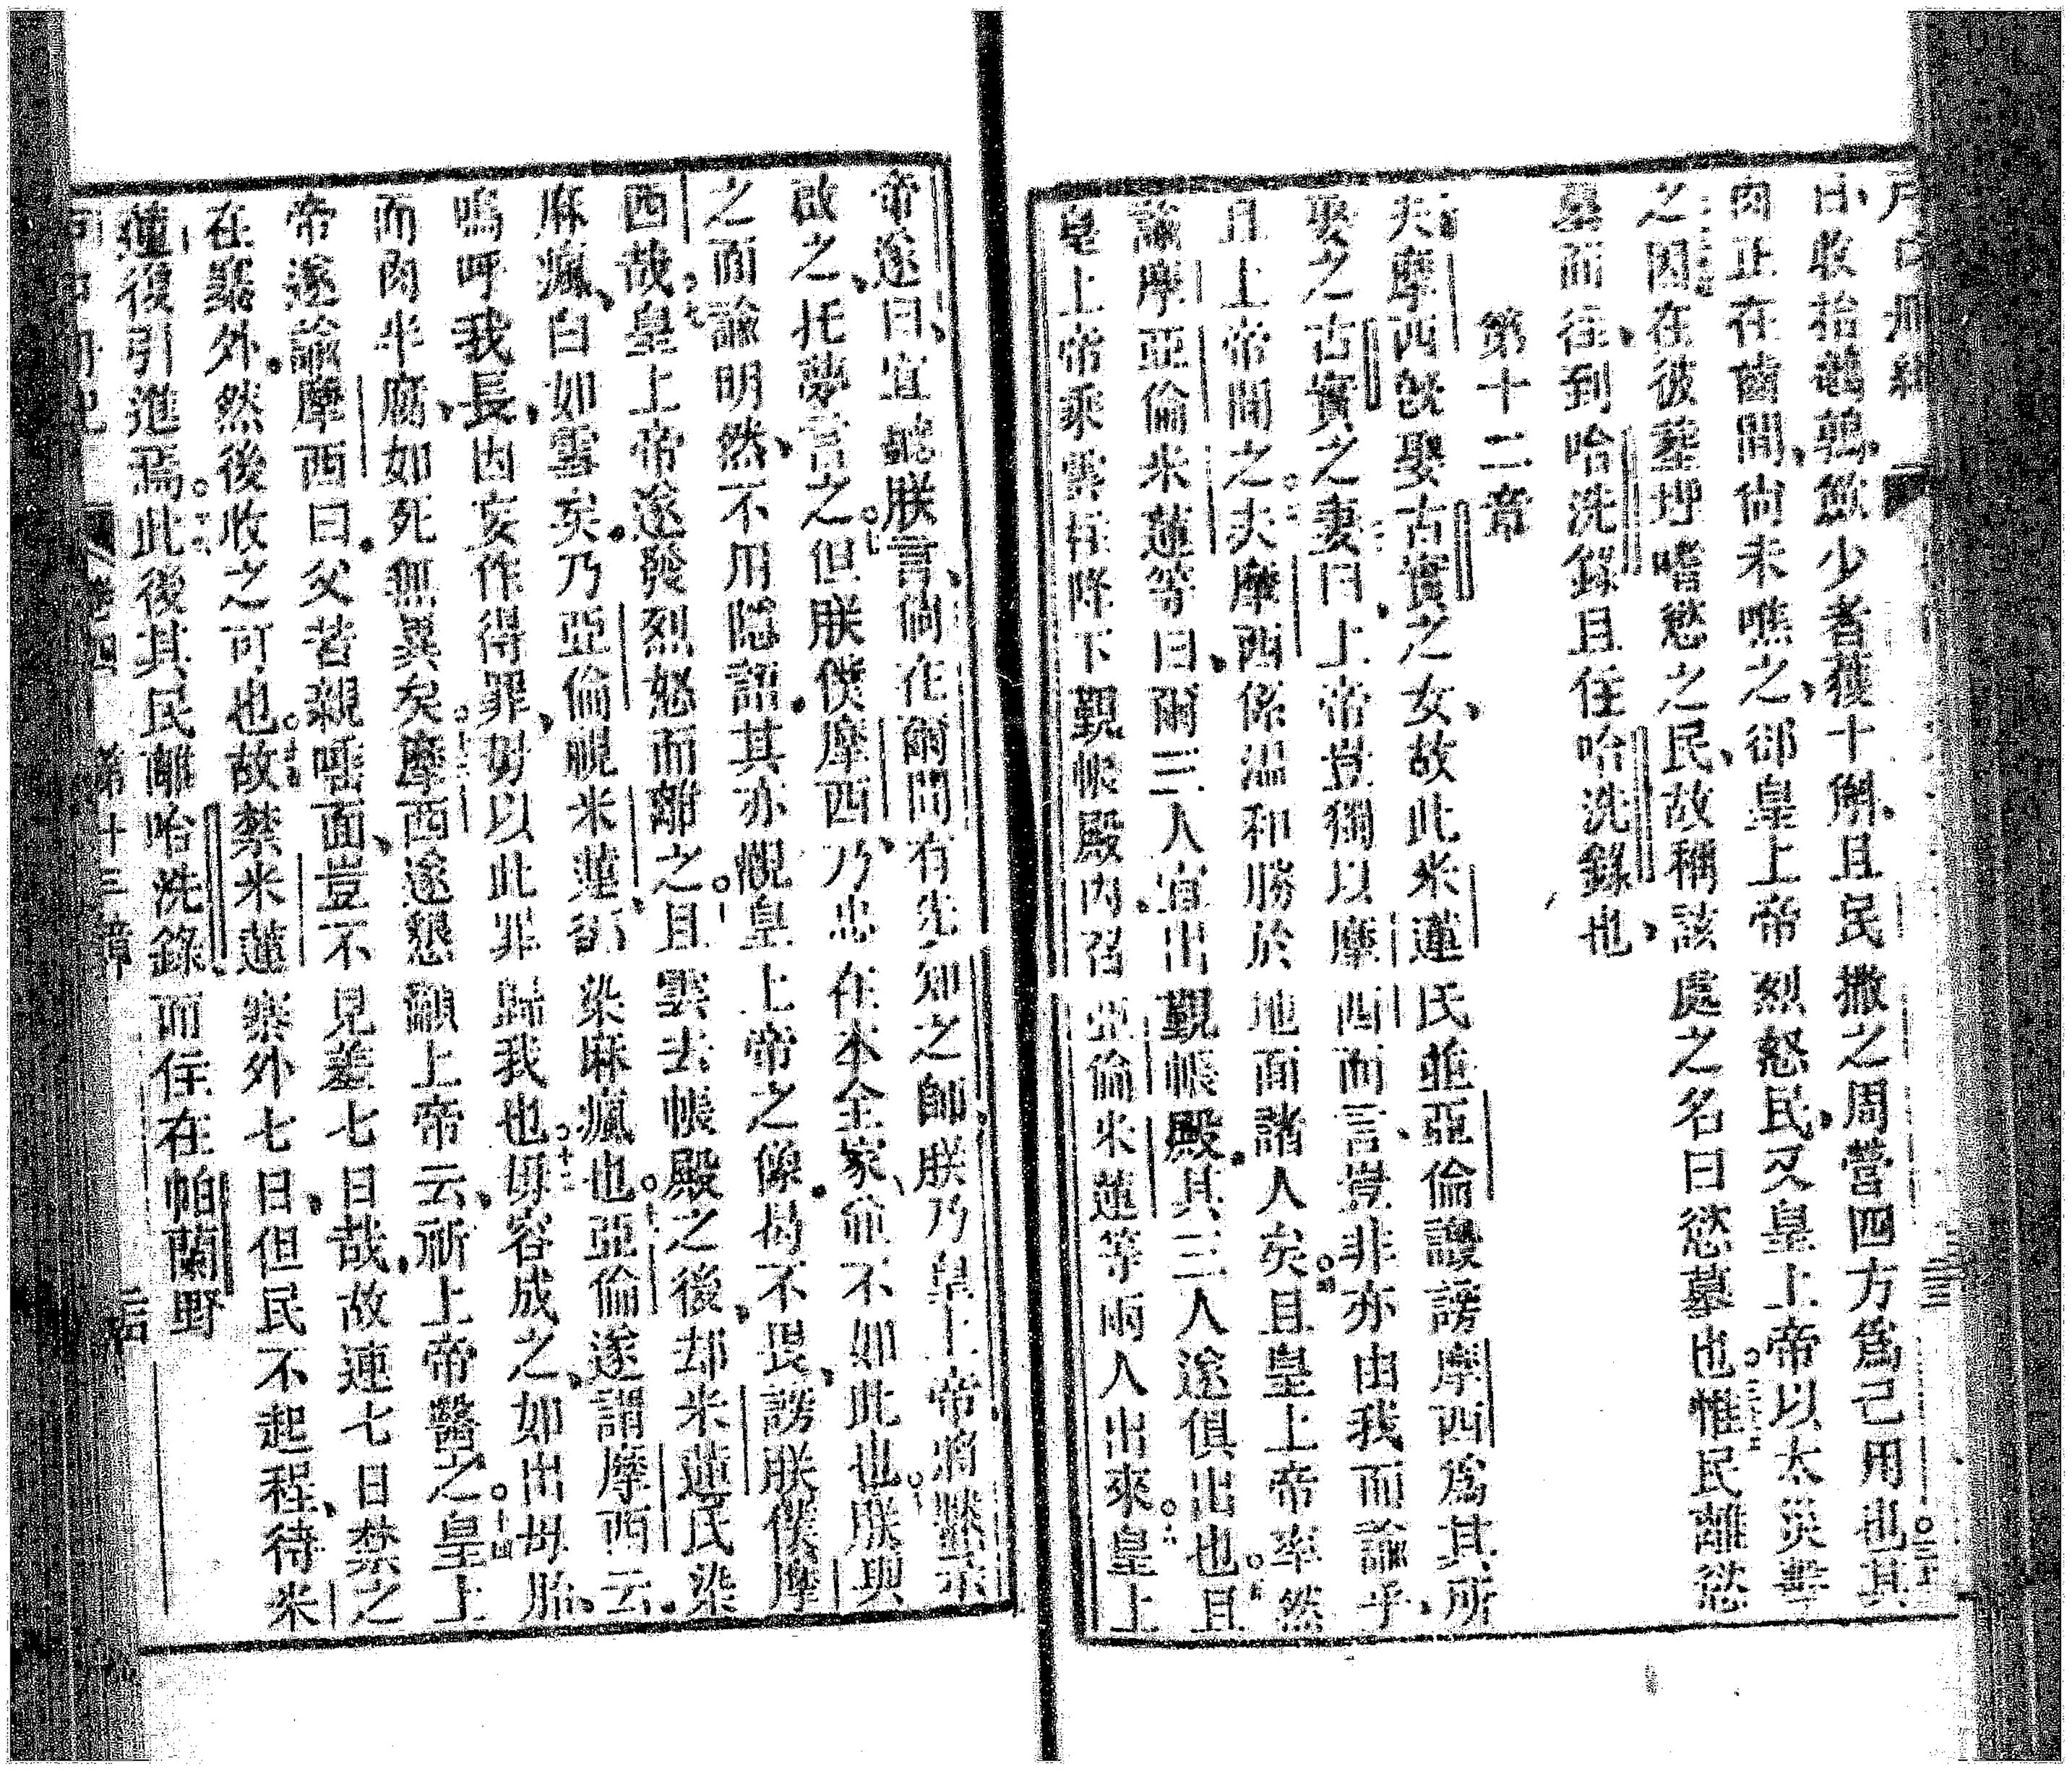 戶口冊紀
日、收拾鵪鶉、歛少者獲十斛、且民撒之周營四方爲己用也。其
肉正在齒間、尙未噍之、卻皇上帝烈怒民、又皇上帝以太災擊
之。因在彼塟埓嗜慾之民、故稱該處之名曰慾墓也。惟民離慾
墓而往、到哈洗錄、且住哈洗錄也、
第十二章
夫摩西旣娶古實之女、故此米蓮氏並亞倫謗摩西爲其所
娶之古實之妻。曰、上帝豈獨以摩西而言、豈非亦由我而諭乎、
且上帝聞之。夫摩西係溫和勝於地面諸人矣。且皇上帝率然
諭摩亞倫米蓮等曰、爾三人宜出覲帳殿。其三人遂俱出也。且
皇上帝乘雲柱降下覲帳殿內、召亞倫米蓮等兩人出來。皇上
帝遂曰、宜聽朕言、倘在爾間有先知之師、朕乃皇上帝將默示
啟之、托夢言之。但朕僕摩西、乃忠在本全家、俞不如此也。朕與
之而諭明然、不用隱語、其亦觀皇上帝之像、曷不畏、謗朕僕摩
西哉。皇上帝遂發烈怒而離之。且雲去帳殿之後、却米蓮氏染
麻瘋、白如雪矣。乃亞倫睨米蓮、卻染麻瘋也。亞倫遂謂摩西云、
嗚呼我長、因妄作得罪、毋以此罪歸我也。毋容成之、如出母胎、
而肉半腐、如死無異矣。摩西遂懇籲上帝云、祈上帝醫之。皇上
帝遂諭摩西曰、父若親唾面、豈不見羞七日哉、故連七日禁之
在寨外、然後收之可也。故禁米蓮寨外七日、但民不起程、待米
蓮復引進焉。此後其民離哈洗錄、而住在帕蘭野
戶口冊紀 卷四 第十三章